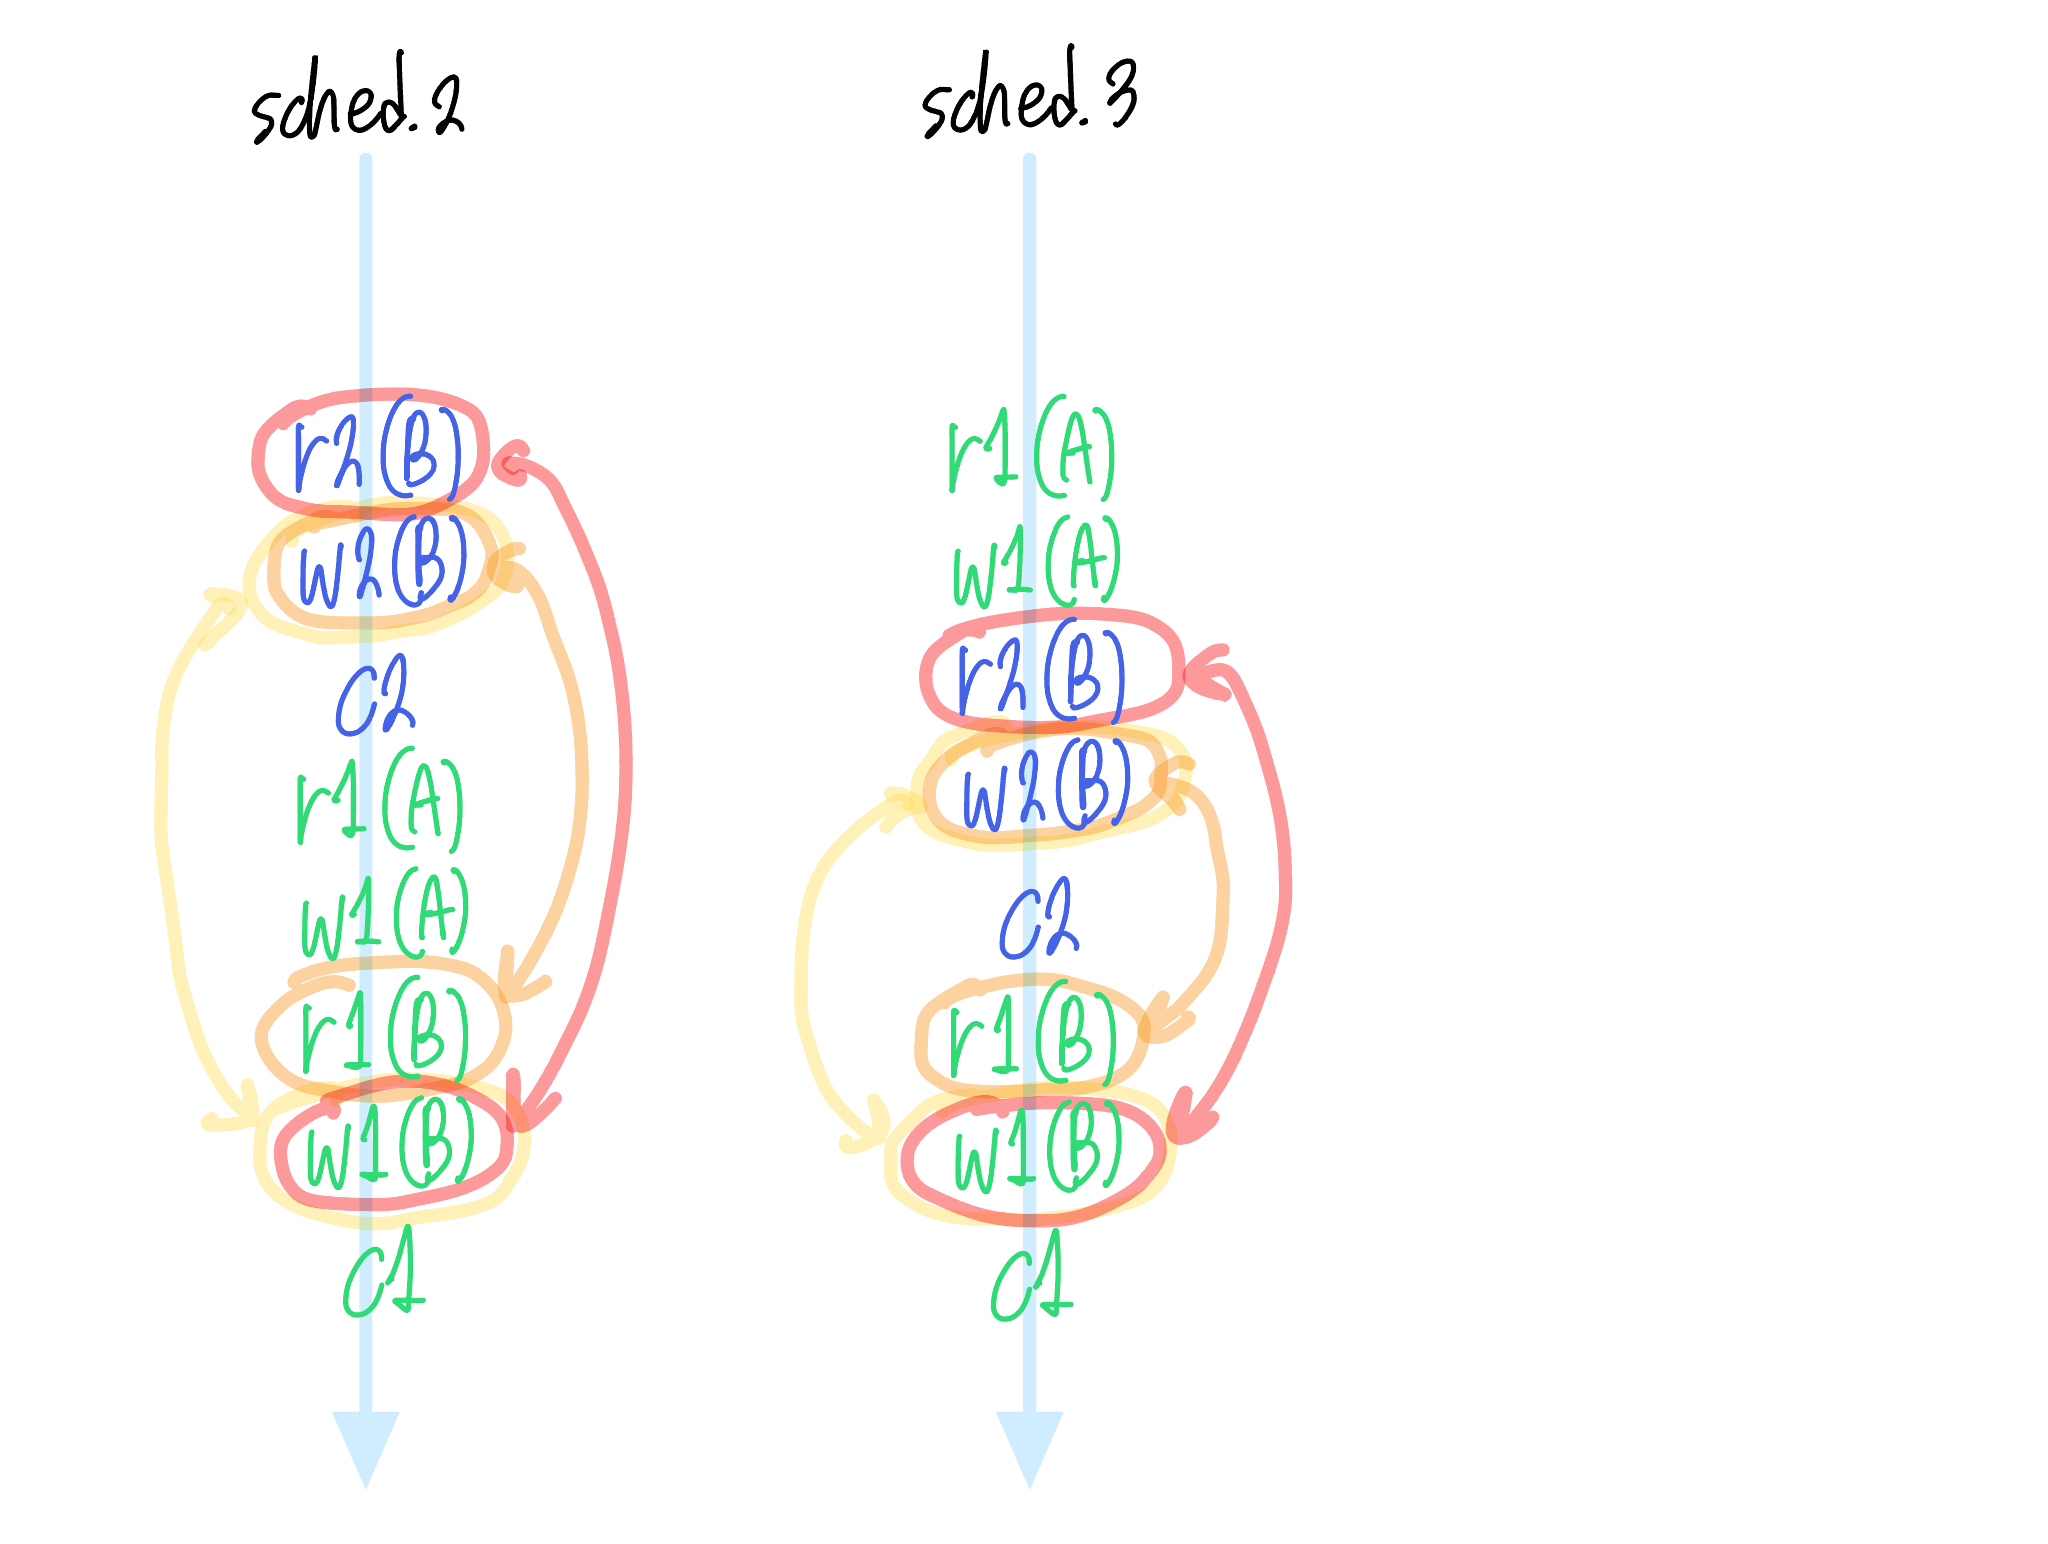 sched.2
r2(B)
w2(B)
C2
r1(A)
w1(A)
r1(B)
w1(B)
C1
sched.3
r1(A)
w1(A)
r2(B)
w2(B)
C2
r1(B)
w1(B)
C1